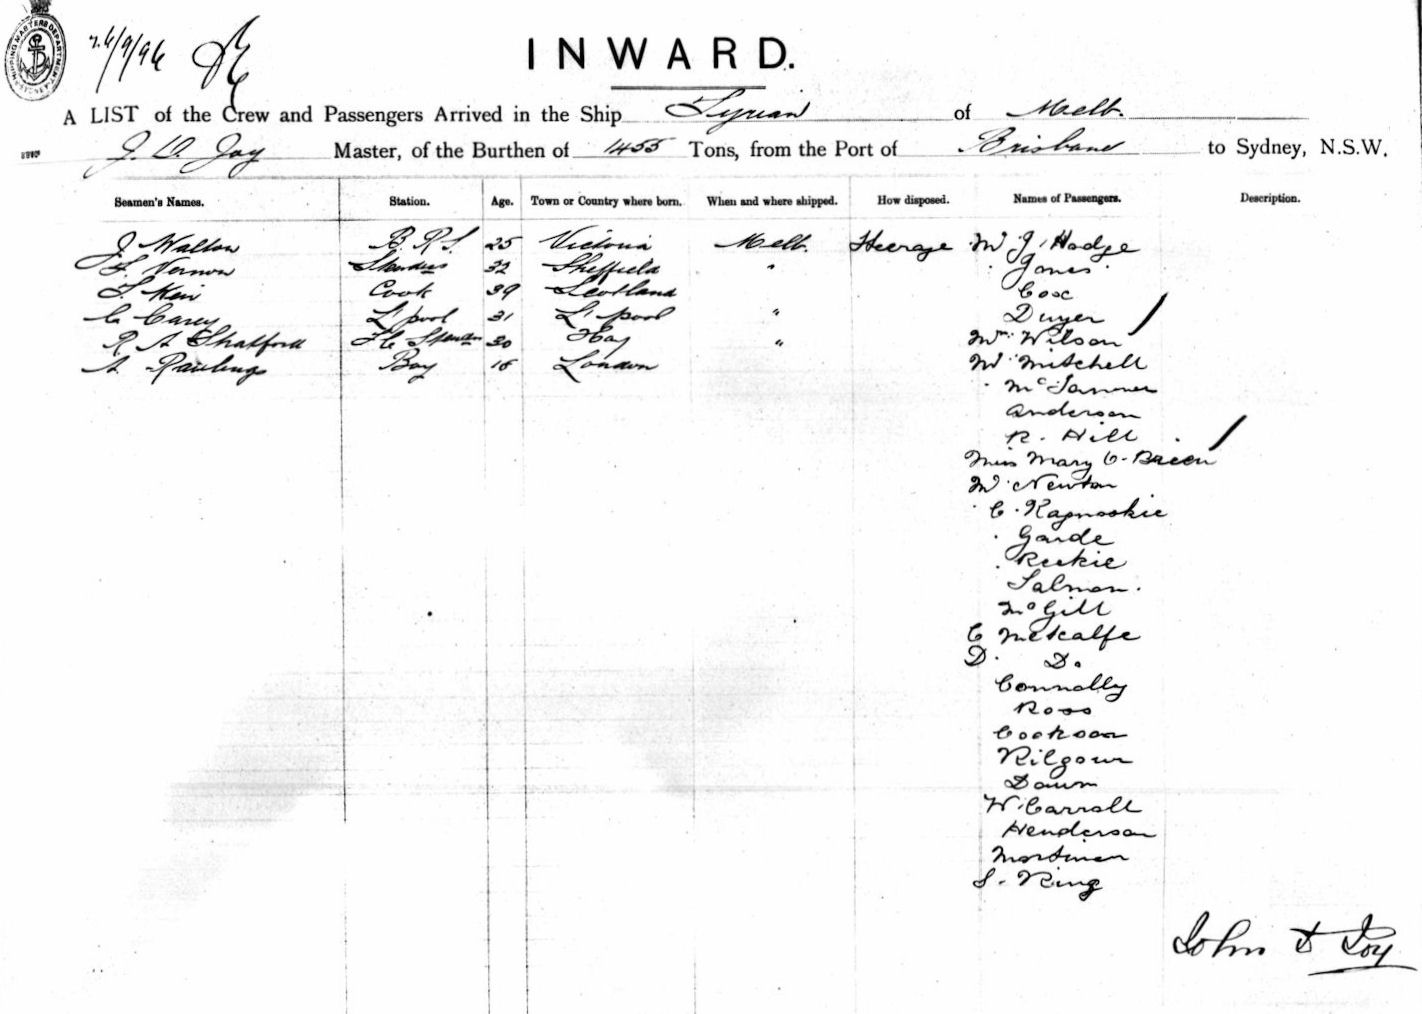 SHIPPING MASTERS DEPARTMENT
26/9/96
INWARD.
A LIST of the Crew and Passengers Arrived in the Ship Tyrian of Melb.
J. D. Joy Master, of the Burthen of 1455 Tons, from the Port of Brisbane to Sydney, N.S.W.
Seamen's Names. Station. Age. Town or Country where born. When and where shipped. How disposed. Names of Passengers. Description.
J Walton 25 Victoria Melb. Steerage Mr J. Hodge
Vernon 32 Sheffield " Jones
Cook 39 Scotland Cox
C Carey L'pool 31 L'pool " Dwyer
R A Shatford 30 Hay " Mr Wilson
A Rawlings Boy 16 London Mr Mitchell
Anderson
R. Hill
Miss Mary O'Brien
Mr Newton
C.
Garde
Reekie
Salmon.
McGill
C Metcalfe
D. Do
Connolly
Ross
Cookson
Kilgour
Dawn
W. Carroll
Henderson
Mortimer
S. King
John D Joy